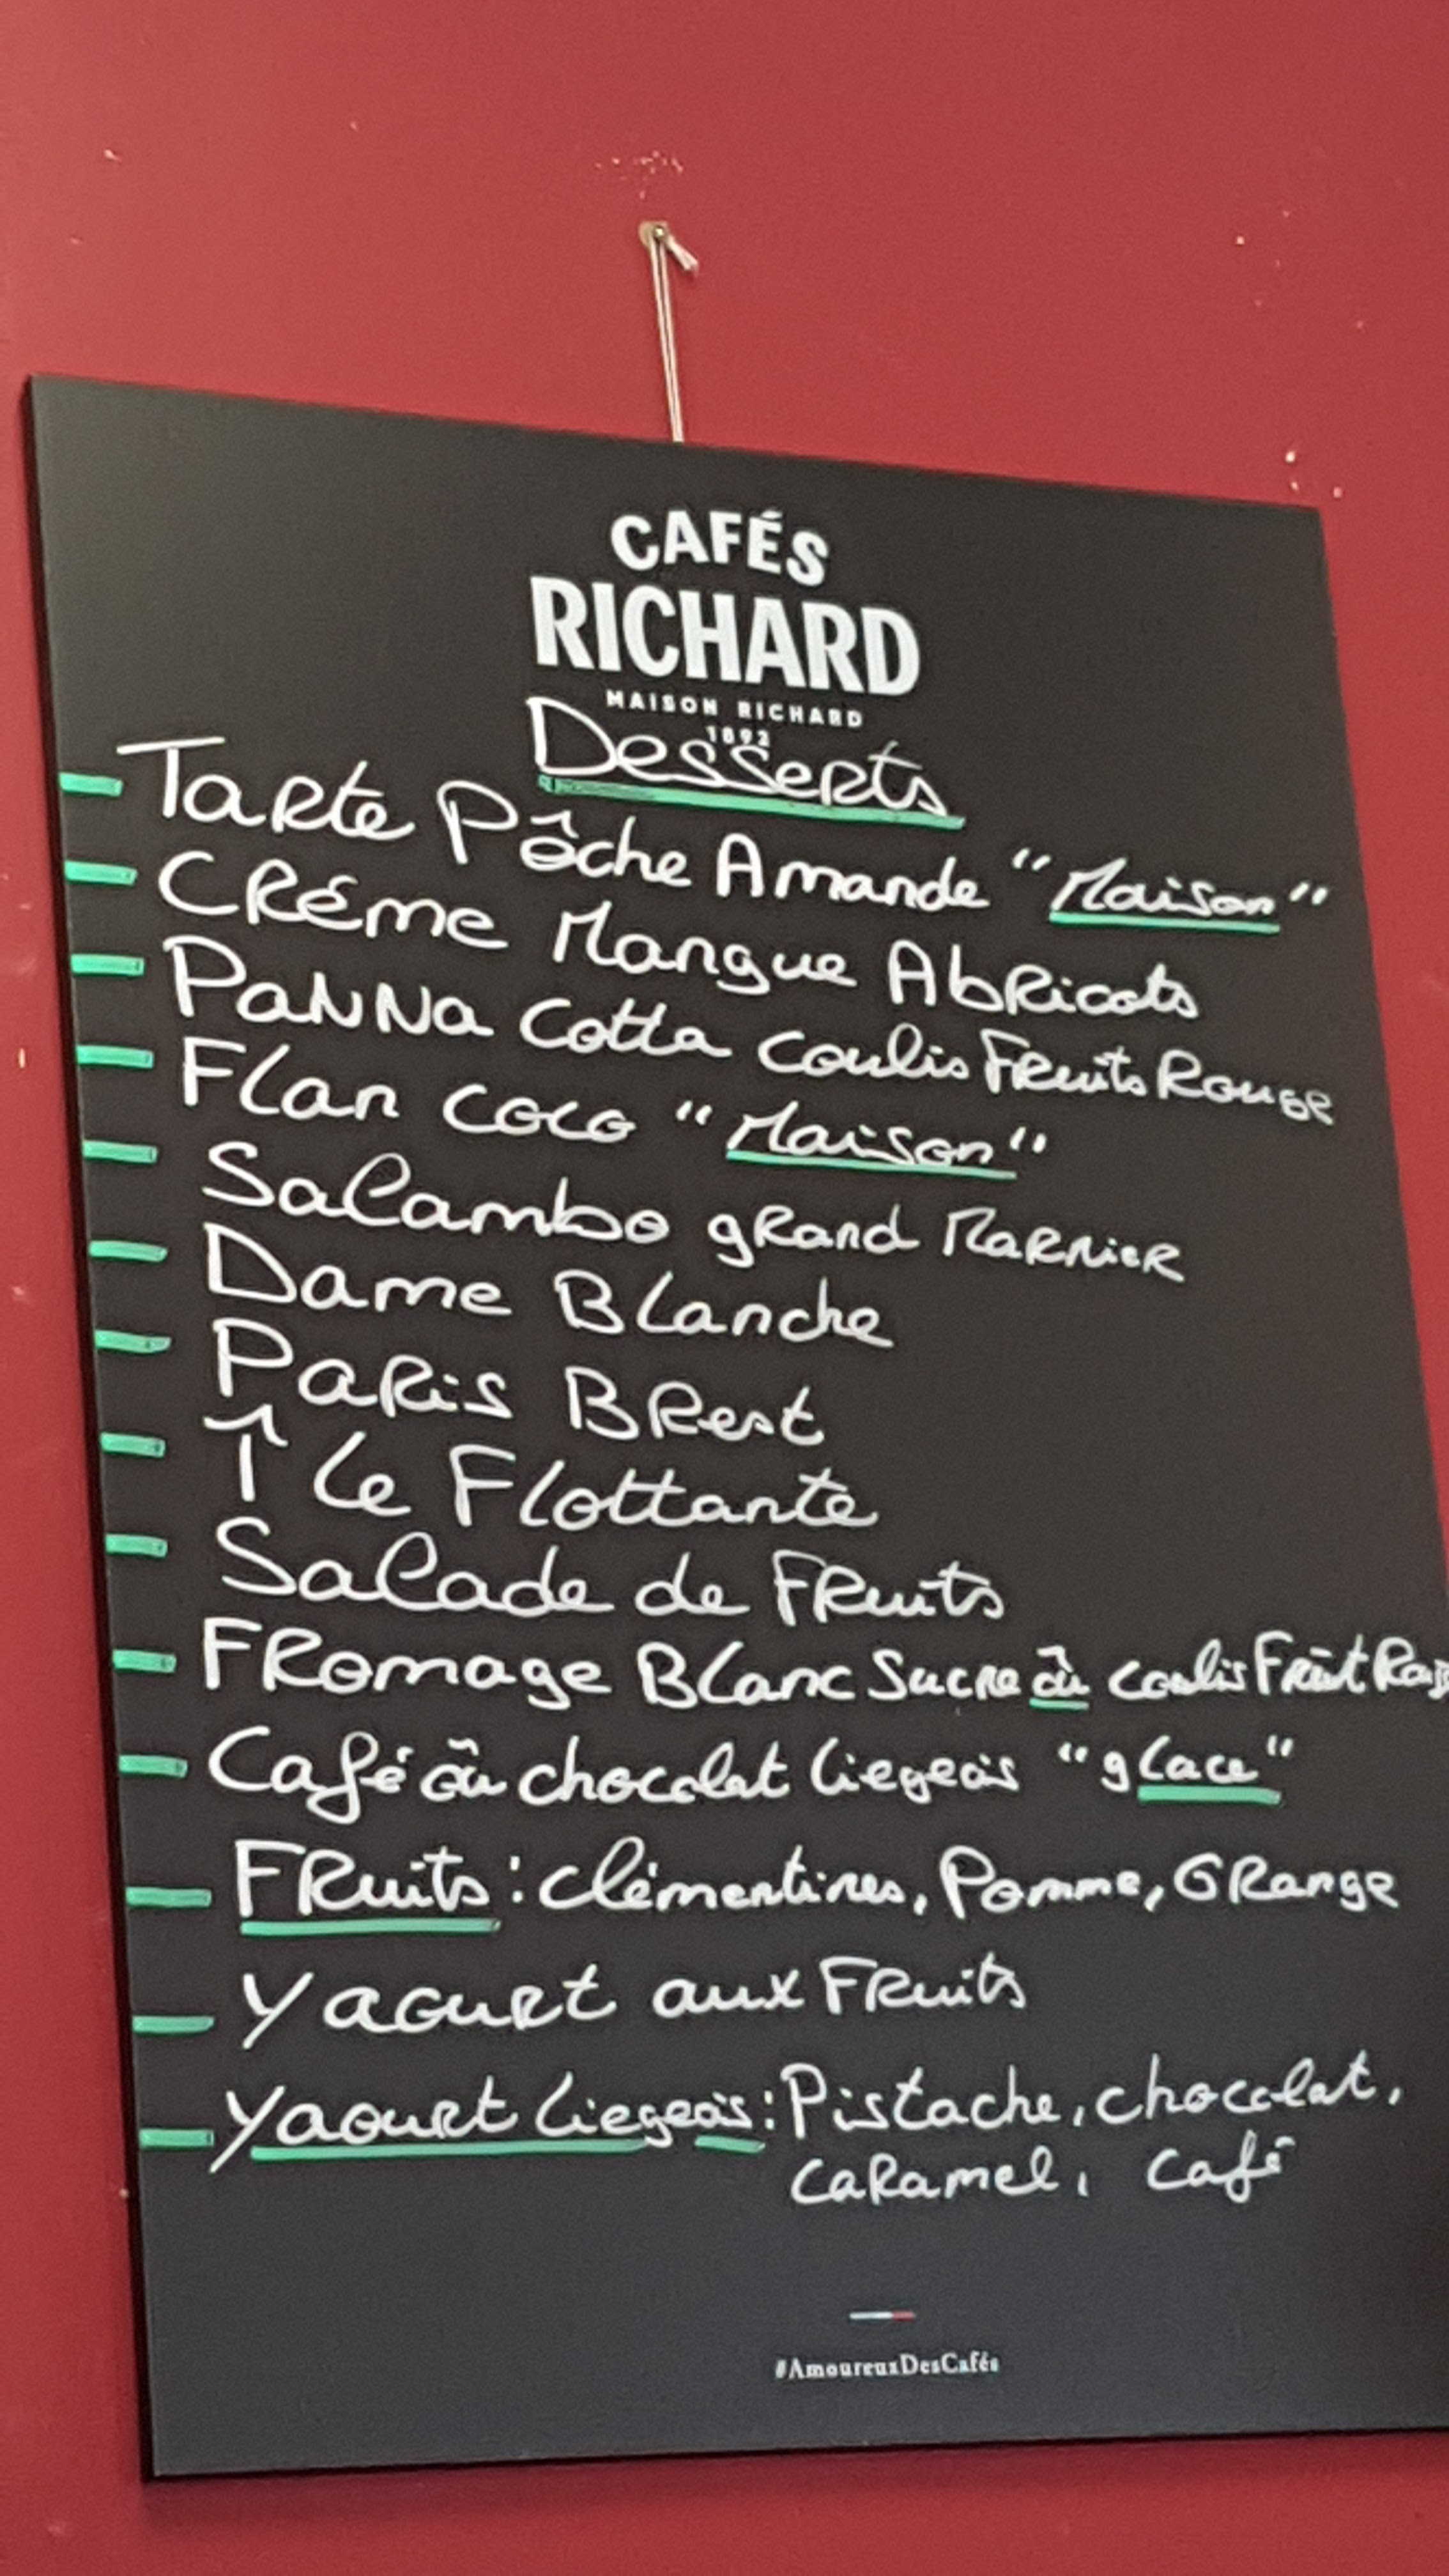 CAFÉS
RICHARD
MAISON RICHARD
1892
Desserts
Tarte Pêche Amande "Maison"
Créme Mangue Abricots
Panna Cotta coulis Fruits Rouge
Flan coco "Maison"
Salambo grand Marnier
Dame Blanche
Paris Brest
Île Flottante
Salade de Fruits
Fromage Blanc Sucre ou coulis Fruit
Café ou chocolat liegeois "glace"
Fruits : clémentines, Pomme, Orange
Yaourt aux Fruits
Yaourt liegeois : Pistache, chocolat,
caramel, café
#AmoureuxDesCafés